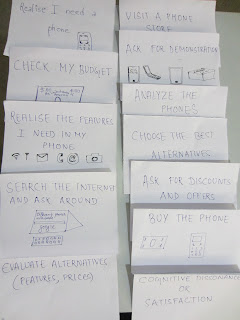 Realise I need a
phone
CHECK MY BUDGET
REALISE THE FEATURES
I NEED IN MY
PHONE
SEARCH THE INTERNET
AND ASK AROUND
google
EVALUATE ALTERNATIVES
(FEATURES, PRICES)
VISIT A PHONE
STORE
ASK FOR DEMONSTRATION
ANALYZE THE
PHONES
CHOOSE THE BEST
ALTERNATIVES
ASK FOR DISCOUNTS
AND OFFERS
BUY THE PHONE
COGNITIVE DISSONANCE
OR
SATISFACTION